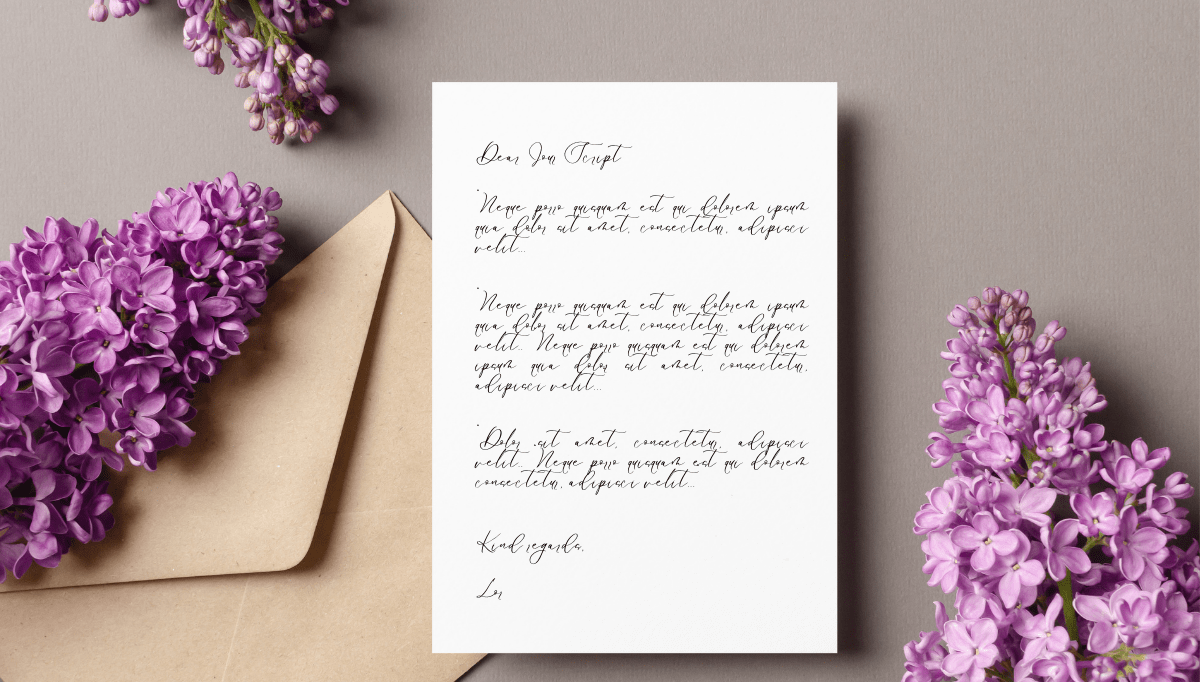 Dear Script
Neque porro quisquam est qui dolorem ipsum
quia dolor sit amet, consectetur, adipisci
velit...
Neque porro quisquam est qui dolorem ipsum
quia dolor sit amet, consectetur, adipisci
velit... Neque porro quisquam est qui dolorem
ipsum quia dolor sit amet, consectetur,
adipisci velit...
Dolor sit amet, consectetur, adipisci
velit... Neque porro quisquam est qui dolorem
consectetur, adipisci velit...
Kind regards,
Lor